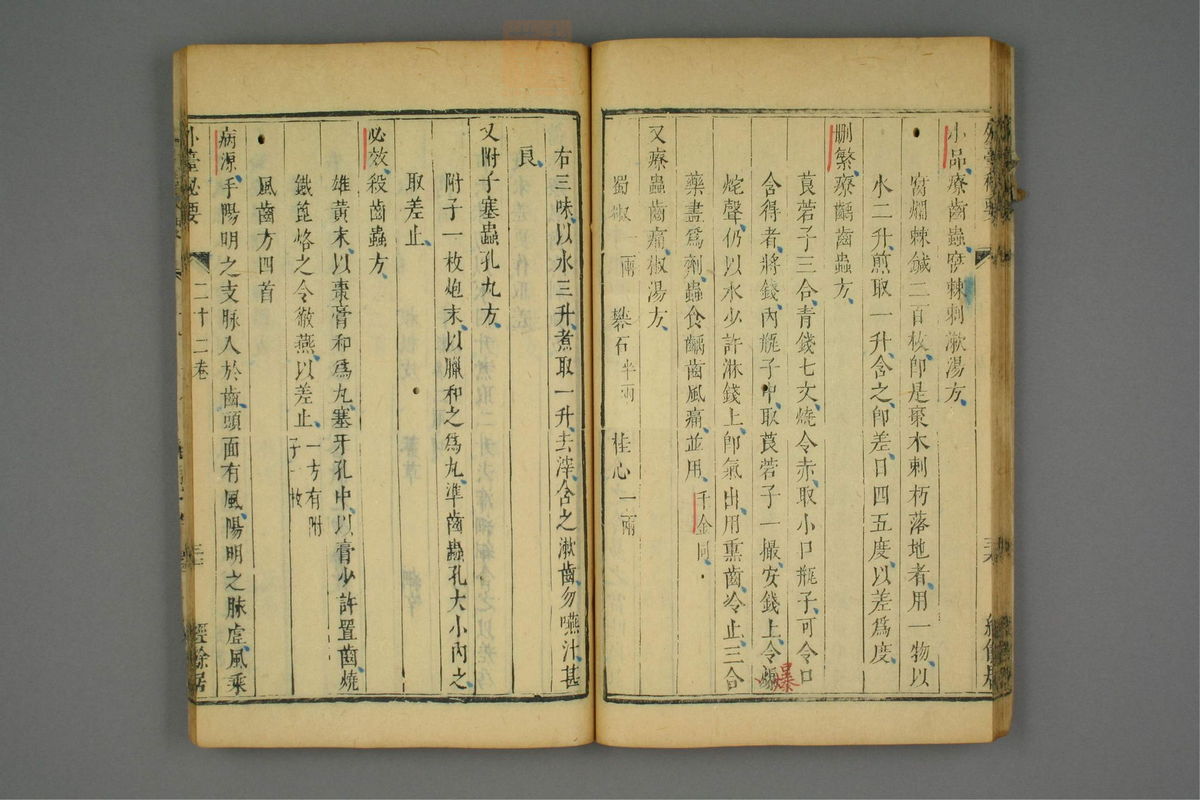 小品療齒蟲腐棘刺漱湯方
腐爛棘鍼二百枚即是棗木刺朽落地者用一物以
水二升煎取一升含之即差日四五度以差為度
刪繁療齲齒蟲方
莨菪子三合青錢七文燒令赤取小口瓶子可令口
含得者將錢內瓶子中取莨菪子一撮安錢上令
爆
炨聲仍以水少許淋錢上即氣出用熏齒冷止三合
藥盡為劑蟲食齲齒風痛並用千金同
又療蟲齒痛椒湯方
蜀椒一兩 礬石半兩 桂心一兩
右三味以水三升煮取一升去滓含之漱齒勿嚥汁甚
良
又附子塞蟲孔丸方
附子一枚炮末以臘和之為丸準齒蟲孔大小內之
取差止
必效殺齒蟲方
雄黃末以棗膏和為丸塞牙孔中以膏少許置齒燒
鐵篦烙之令徹燕以差止一方有附
子一枚
風齒方四首
病源手陽明之支脉入於齒頭面有風陽明之脉虛風乘
外臺秘要
二十二卷
經餘居